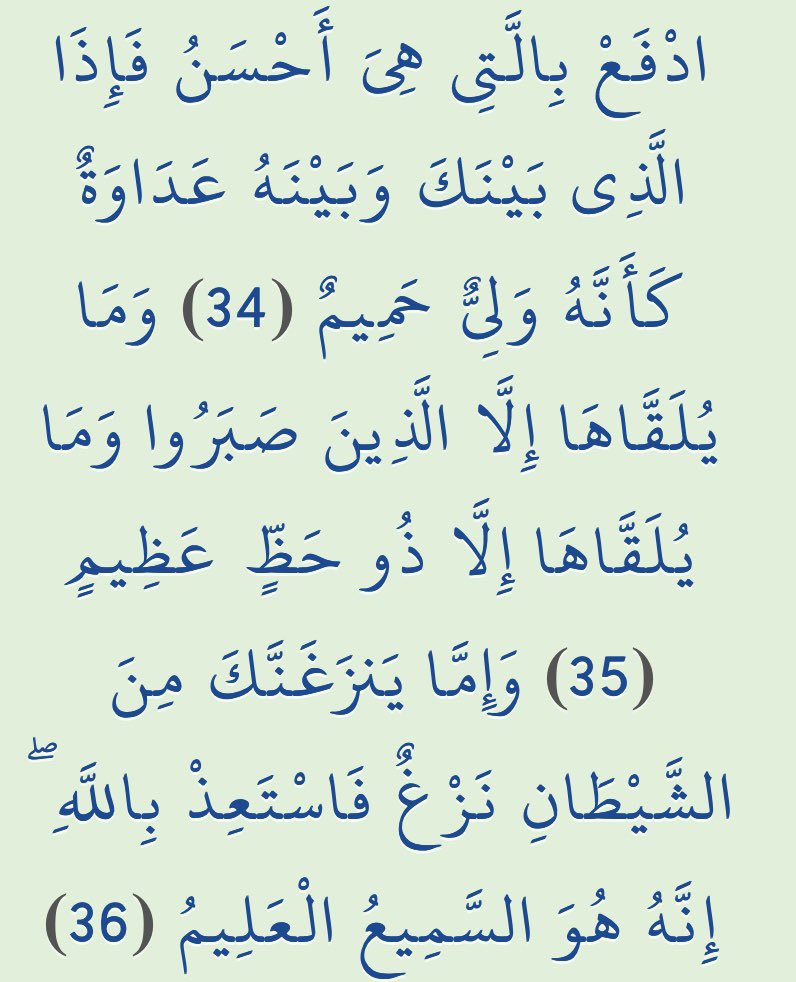 ادْفَعْ بِالَّتِي هِىَ أَحْسَنُ فَإِذَا
الَّذِى بَيْنَكَ وَبَيْنَهُ عَدَاوَةٌ
كَأَنَّهُ وَلِىٌّ حَمِيمٌ (34) وَمَا
يُلَقَّاهَا إِلَّا الَّذِينَ صَبَرُوا وَمَا
يُلَقَّاهَا إِلَّا ذُو حَظٍّ عَظِيمٍ
(35) وَإِمَّا يَنزَغَنَّكَ مِنَ
الشَّيْطَانِ نَزْغٌ فَاسْتَعِذْ بِاللَّهِ ۖ
إِنَّهُ هُوَ السَّمِيعُ الْعَلِيمُ (36)